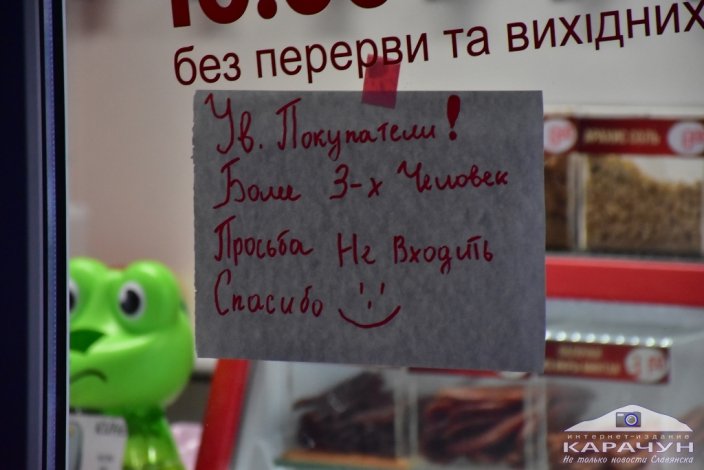 без перерви та вихідних
Ув. Покупатели!
Боле 3-х Человек
Просьба Не Входить
Спасибо
интернет-издание
КАРАЧУН
Не только новости Славянска